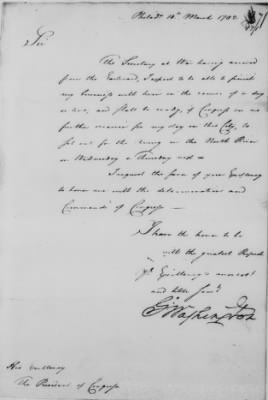 Philad.a 18th March 1782
Sir
The Secretary at War having arrived
from the Eastward, I expect to be able to finish
my business with him in the course of a day
or two, and shall be ready, if Congress see no
further occasion for my stay in this City, to
set out for the Army on the North River
on Wednesday or Thursday next
I request the favor of your Excellency
to honor me with the determination and
Commands of Congress
I have the honor to be
with the greatest Respect
Yr Excellency's most obt
and hble Servt
Go Washington
His Excellency
The President of Congress